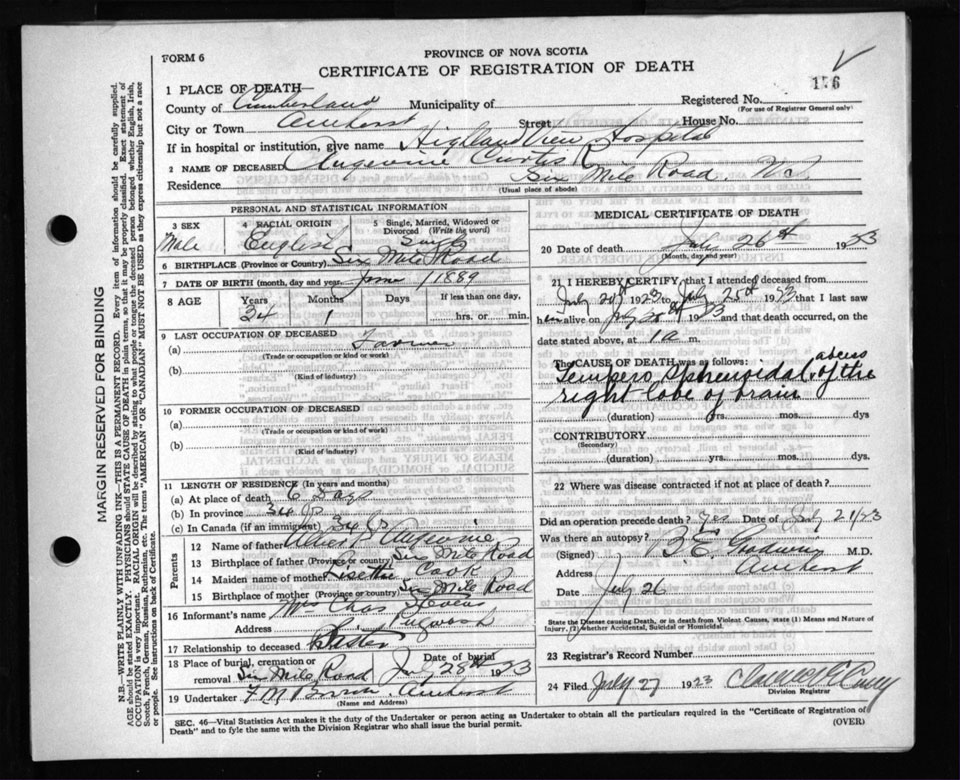 PROVINCE OF NOVA SCOTIA
FORM 6
CERTIFICATE OF REGISTRATION OF DEATH
176
1 PLACE OF DEATH—
County of Cumberland Municipality of Registered No.
(For use of Registrar General only)
City or Town Amherst Street House No.
If in hospital or institution, give name Highland View Hospital
2 NAME OF DECEASED Curtis R
Residence Six Mile Road, N.S.
(Usual place of abode)
PERSONAL AND STATISTICAL INFORMATION
3 SEX 4 RACIAL ORIGIN 5 Single, Married, Widowed or Divorced (Write the word)
Male English Single
6 BIRTHPLACE (Province or Country) Six Mile Road
7 DATE OF BIRTH (month, day and year) June 1889
8 AGE Years Months Days If less than one day,
34 1 hrs. or min.
9 LAST OCCUPATION OF DECEASED
(a) Farmer
(Trade or occupation or kind or work)
(b)
(Kind of industry)
10 FORMER OCCUPATION OF DECEASED
(a)
(Trade or occupation or kind or work)
(b)
(Kind of industry)
11 LENGTH OF RESIDENCE (In years and months)
(a) At place of death 6 Days
(b) In province 34
(c) In Canada (if an immigrant) 34
Parents
12 Name of father
13 Birthplace of father (Province or country) Six Mile Road
14 Maiden name of mother Cook
15 Birthplace of mother (Province or country) Six Mile Road
16 Informant's name Mrs Chas Stevens
Address Pugwash
17 Relationship to deceased Sister
18 Place of burial, cremation or removal Six Mile Road Date of burial July 28th 1923
19 Undertaker Amherst
(Name and Address)
MEDICAL CERTIFICATE OF DEATH
20 Date of death July 26th 1923
(Month, day and year)
21 I HEREBY CERTIFY that I attended deceased from
July 20th 1923 to July 25th 1923 that I last saw
him alive on July 1923 and that death occurred, on
date stated above, at 1 a m.
The CAUSE OF DEATH was as follows:
Tempero Sphenoidal abcess of the
right lobe of brain
(duration) yrs. mos. dys
CONTRIBUTORY
(Secondary)
(duration) yrs. mos. dys
22 Where was disease contracted if not at place of death?
Did an operation precede death? Yes Date of July 21/23
Was there an autopsy? Yes
(Signed) M.D.
Address Amherst
Date July 26
State the Disease causing Death, or in death from Violent Causes, state (1) Means and Nature of Injury, (2) whether Accidental, Suicidal or Homicidal.
23 Registrar's Record Number
24 Filed July 27 1923
Division Registrar
SEC. 46—Vital Statistics Act makes it the duty of the Undertaker or person acting as Undertaker to obtain all the particulars required in the "Certificate of Registration of
Death" and to fyle the same with the Division Registrar who shall issue the burial permit. (OVER)
MARGIN RESERVED FOR BINDING
N.B.—WRITE PLAINLY WITH UNFADING INK—THIS IS A PERMANENT RECORD. Every item of information should be carefully supplied.
AGE should be stated EXACTLY. PHYSICIANS should STATE CAUSE OF DEATH in plain terms, so that it may be properly classified. Exact statement of
OCCUPATION is very important. RACIAL ORIGIN will be described by stating to what people or tongue the deceased person belonged whether English, Irish,
Scotch, French, German, Russian, Ruthenian, etc. The terms "AMERICAN" OR "CANADIAN" MUST NOT BE USED as they express citizenship but not a race
or people. See instructions on back of Certificate.